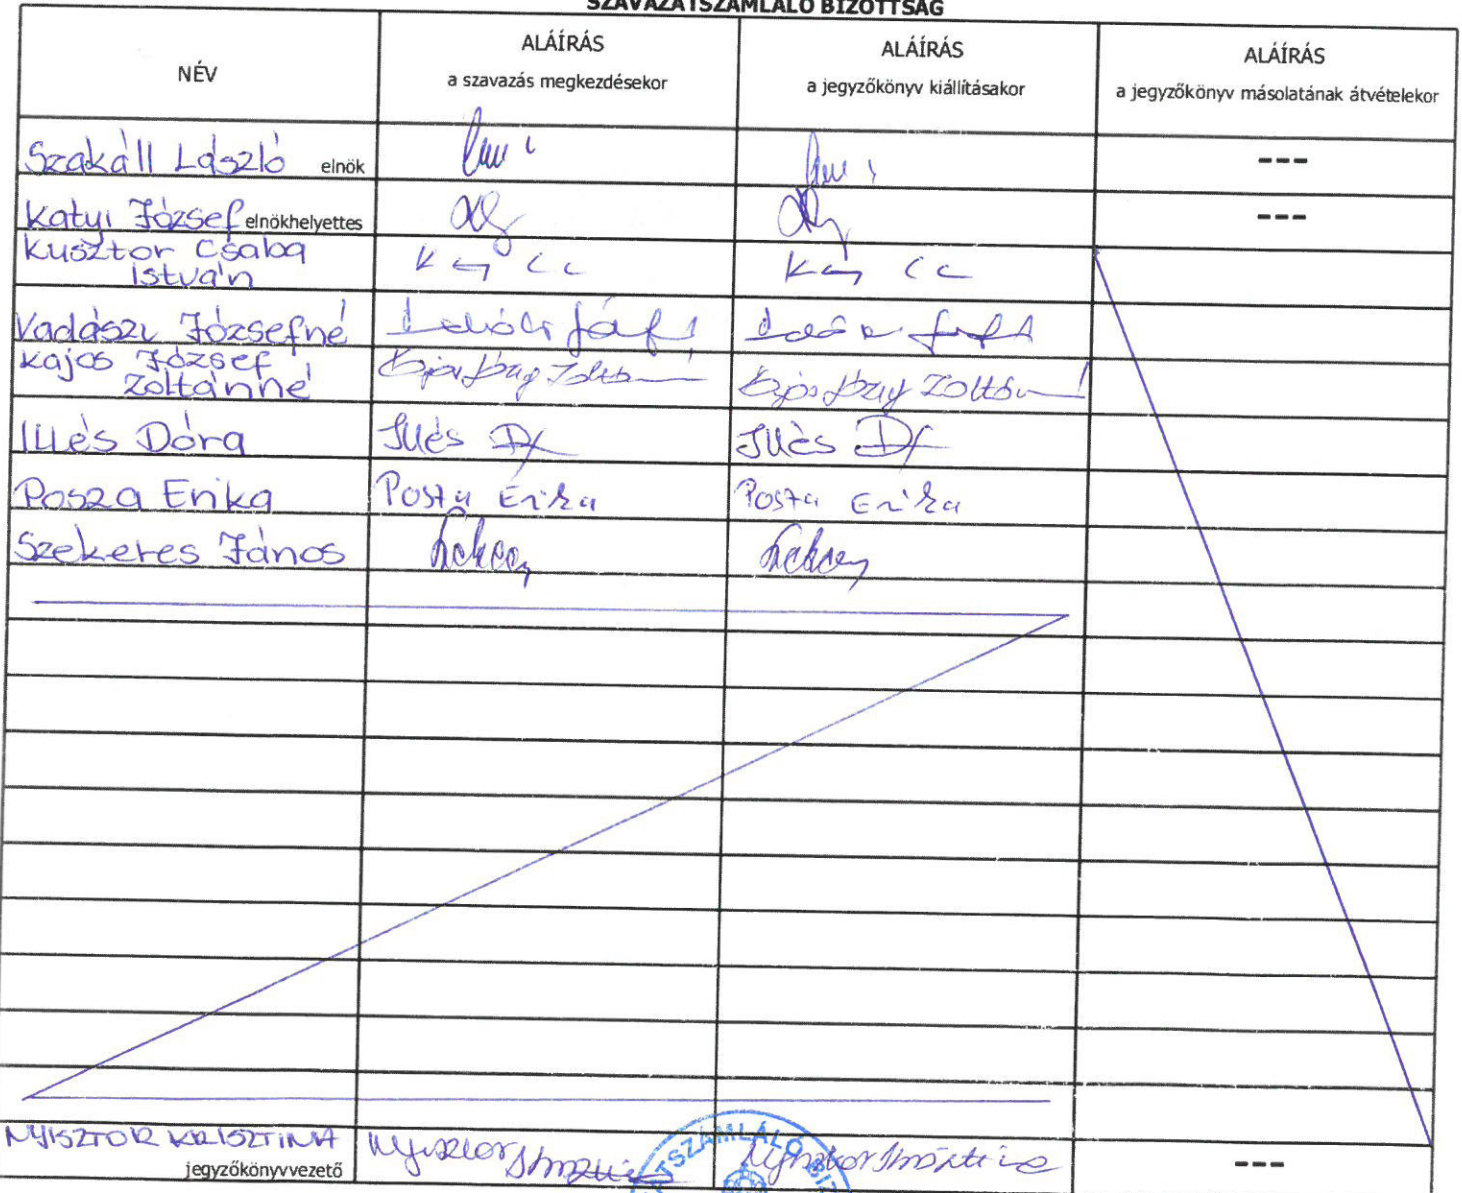 SZAVAZATSZÁMLÁLÓ BIZOTTSÁG
NÉV
ALÁÍRÁS
a szavazás megkezdésekor
ALÁÍRÁS
a jegyzőkönyv kiállításakor
ALÁÍRÁS
a jegyzőkönyv másolatának átvételekor
Szakáll László elnök
---
Katyi József elnökhelyettes
---
Kusztor Csaba
István
Vadászi Józsefné
Kajos József
Zoltánné
Illés Dóra Illés D Illés D
Posza Erika Posta Erika Posta Erika
Szekeres János
NYISZTOR KRISZTINA Nyisztor Krisztina Nyisztor Krisztina
jegyzőkönyvvezető
---